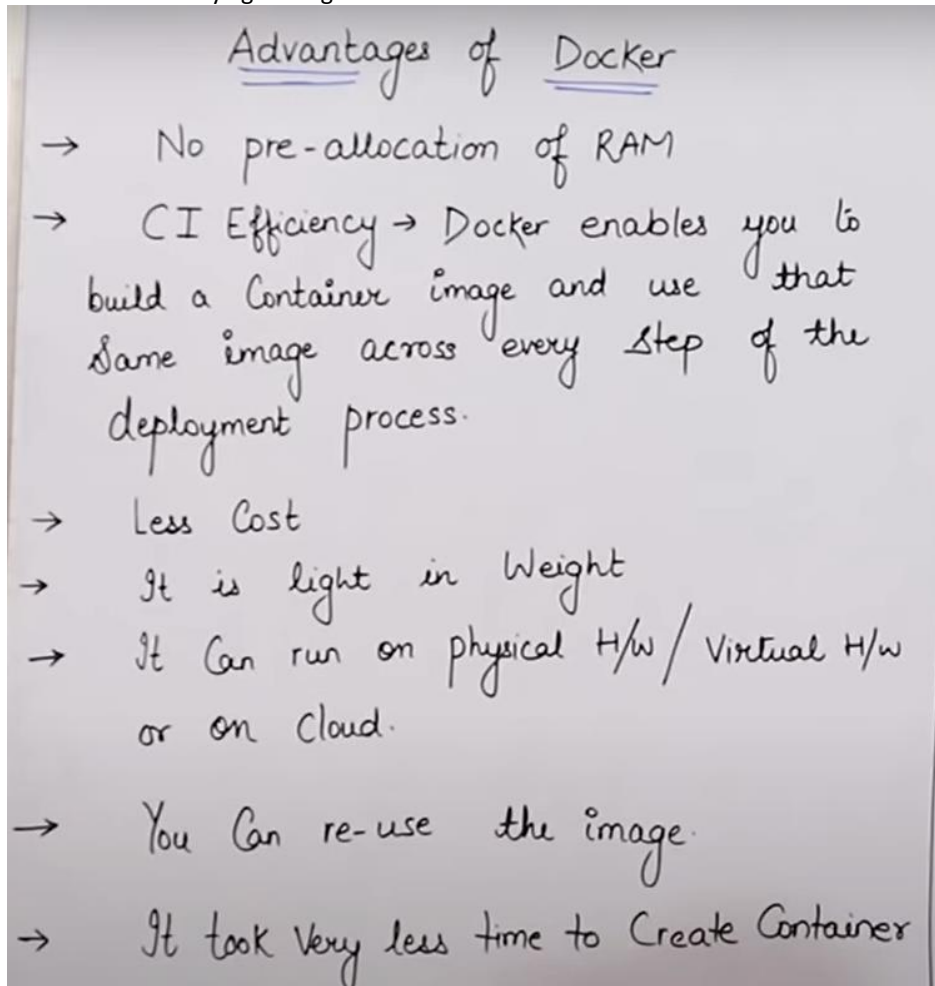 Advantages of Docker
→ No pre-allocation of RAM
→ CI Efficiency → Docker enables you to
build a Container image and use that
Same image across every step of the
deployment process.
→ Less Cost
→ It is light in Weight
→ It Can run on physical H/w / Virtual H/w
or on Cloud.
→ You Can re-use the image.
→ It took Very less time to Create Container